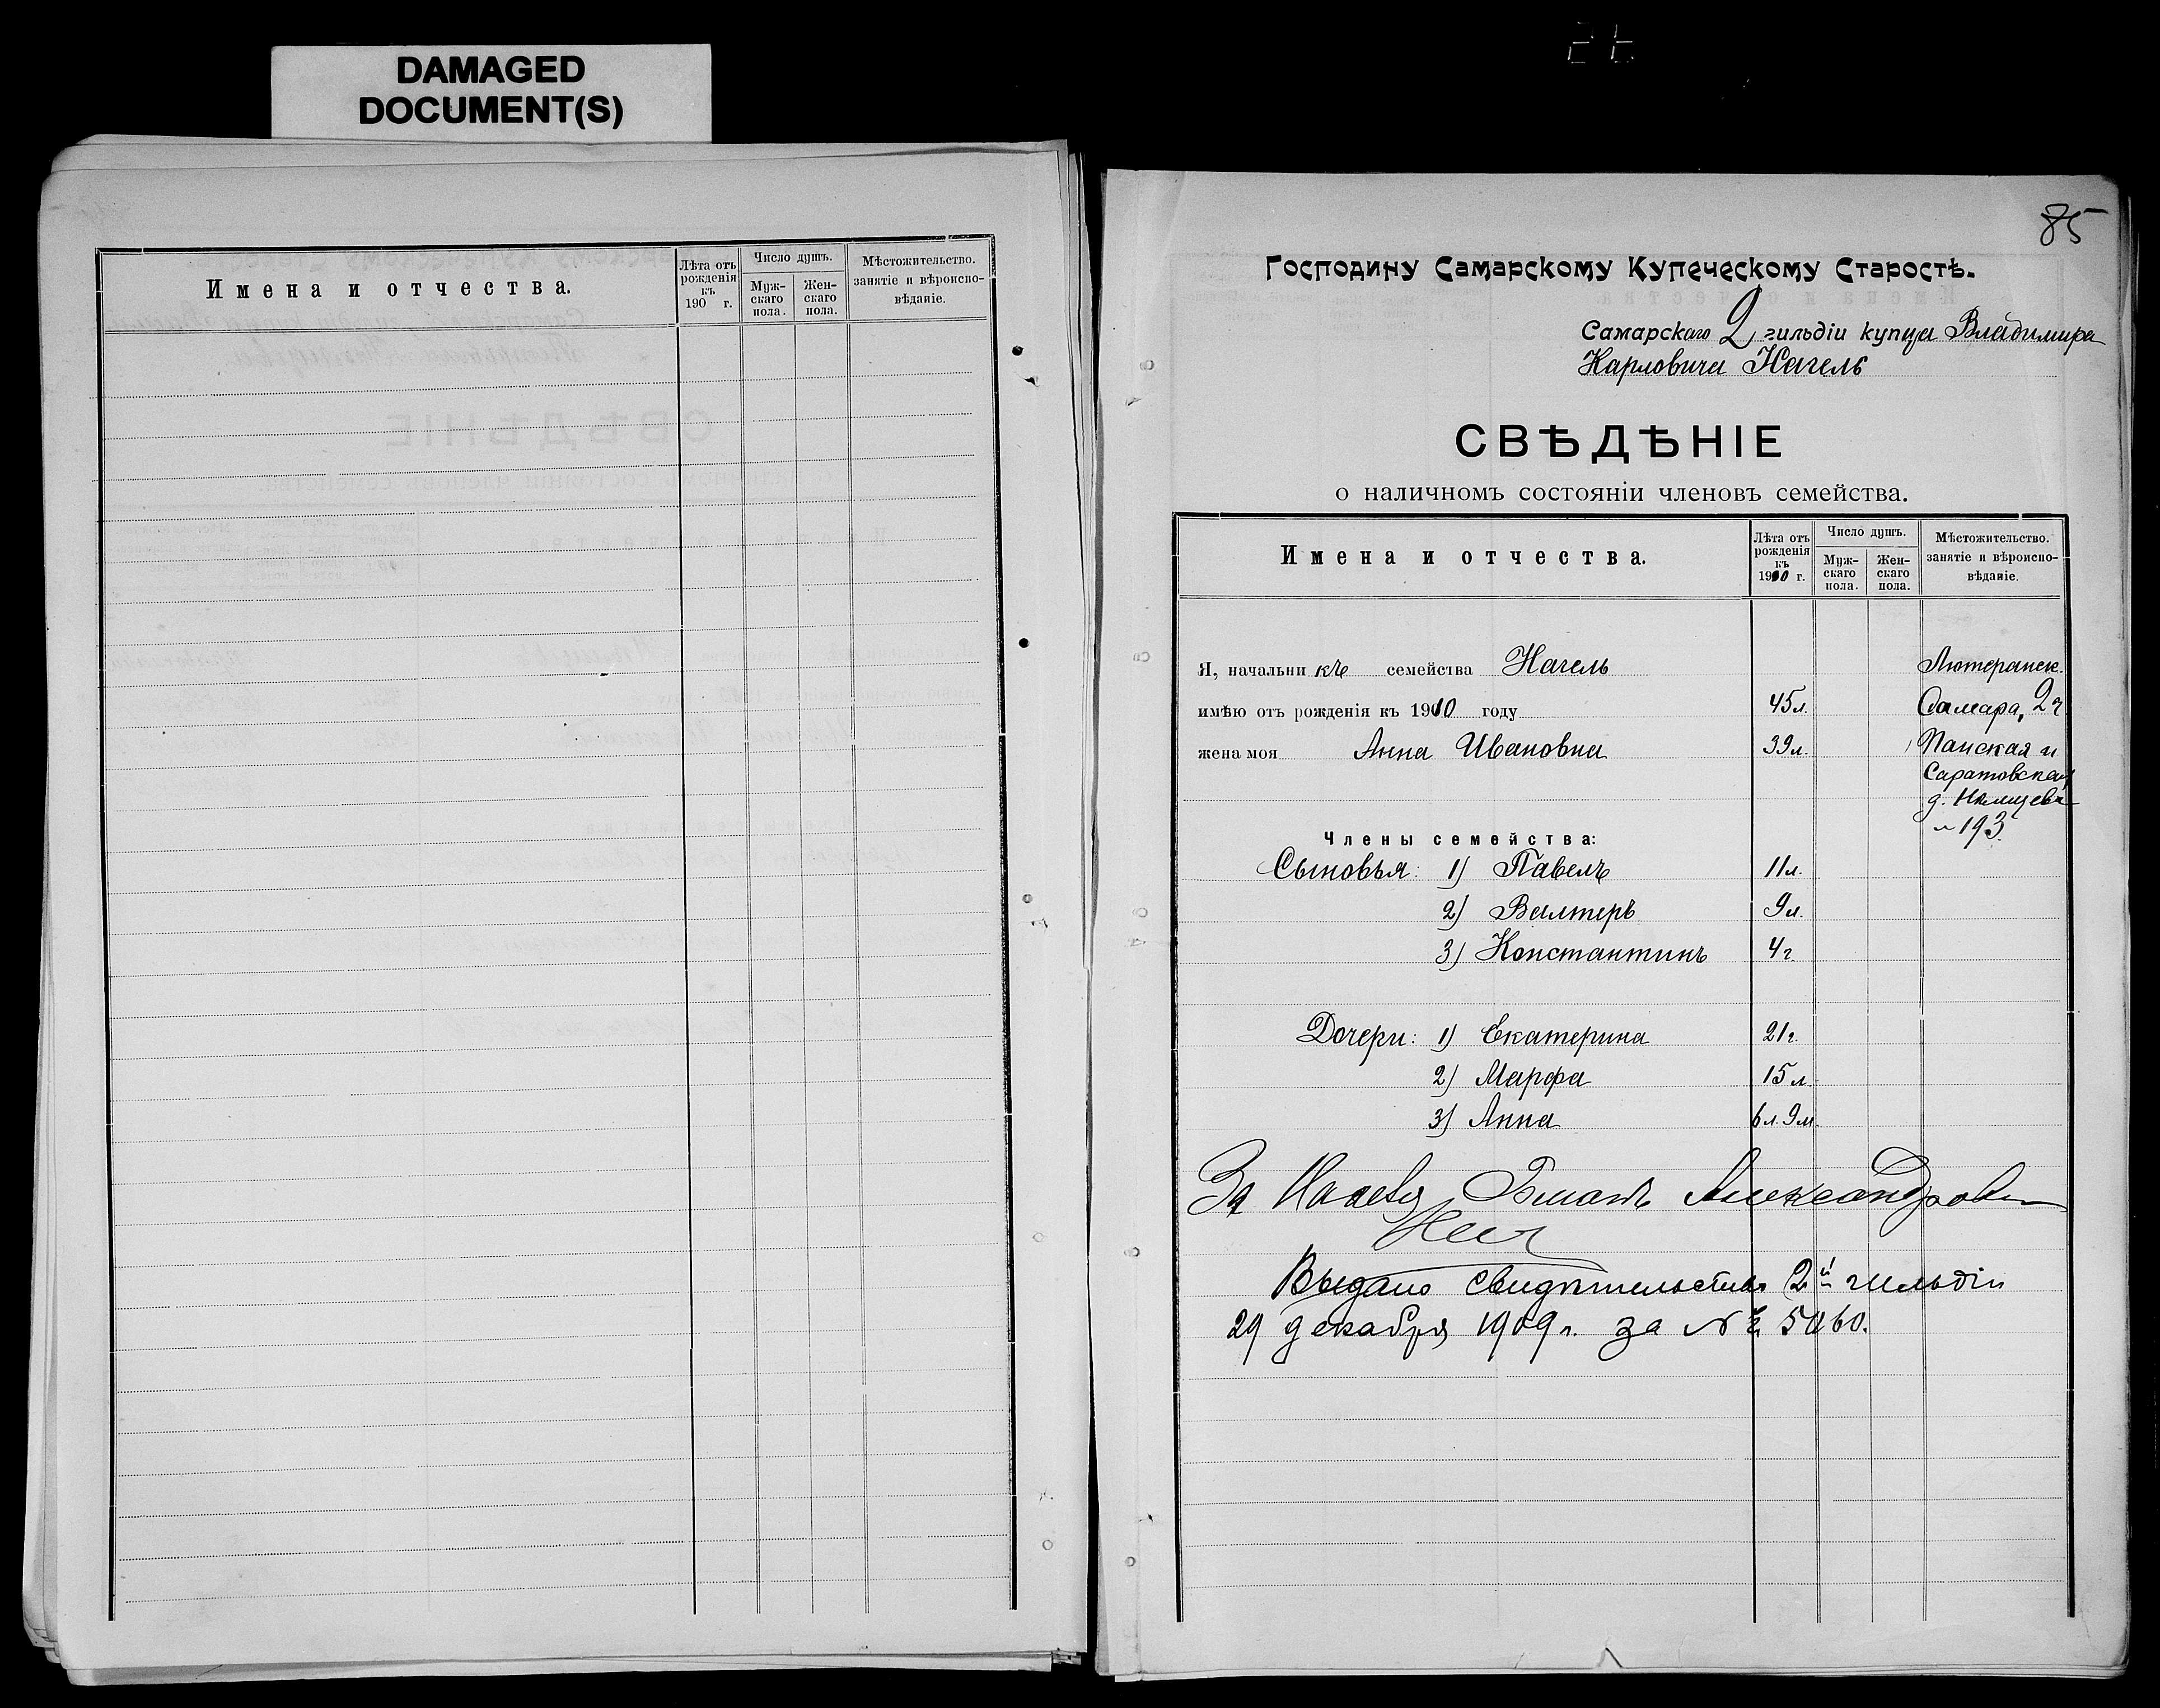 DAMAGED
DOCUMENT(S)
Имена и отчества.
Лѣта отъ рожденія къ 190 г.
Число душъ.
Муж-скаго пола.
Жен-скаго пола.
Мѣстожительство. занятіе и вѣроиспо-вѣданіе.
85
Господину Самарскому Купеческому Старостѣ.
Самарскаго 2 гильдіи купца Владимира
Карловича Нагель
СВѢДѢНІЕ
о наличномъ состояніи членовъ семейства.
Имена и отчества.
Лѣта отъ рожденія къ 1910 г.
Число душъ.
Муж-скаго пола.
Жен-скаго пола.
Мѣстожительство. занятіе и вѣроиспо-вѣданіе.
Я, начальникъ семейства Нагель Лютеранск.
имѣю отъ рожденія къ 1910 году 45 л. Самара, 2 ч
жена моя Анна Ивановна 39 л. Панская и
Саратовская
д.
№ 193
Члены семейства:
Сыновья: 1) Павелъ 11 л.
2) Валтеръ 9 л.
3) Константинъ 4 г.
Дочери: 1) Екатерина 21 г.
2) Марфа 15 л.
3) Анна 6 л. 9 м.
За Александров
Выдано свидѣтельство 2й гильдіи
29 декабря 1909 г. за № 5060.